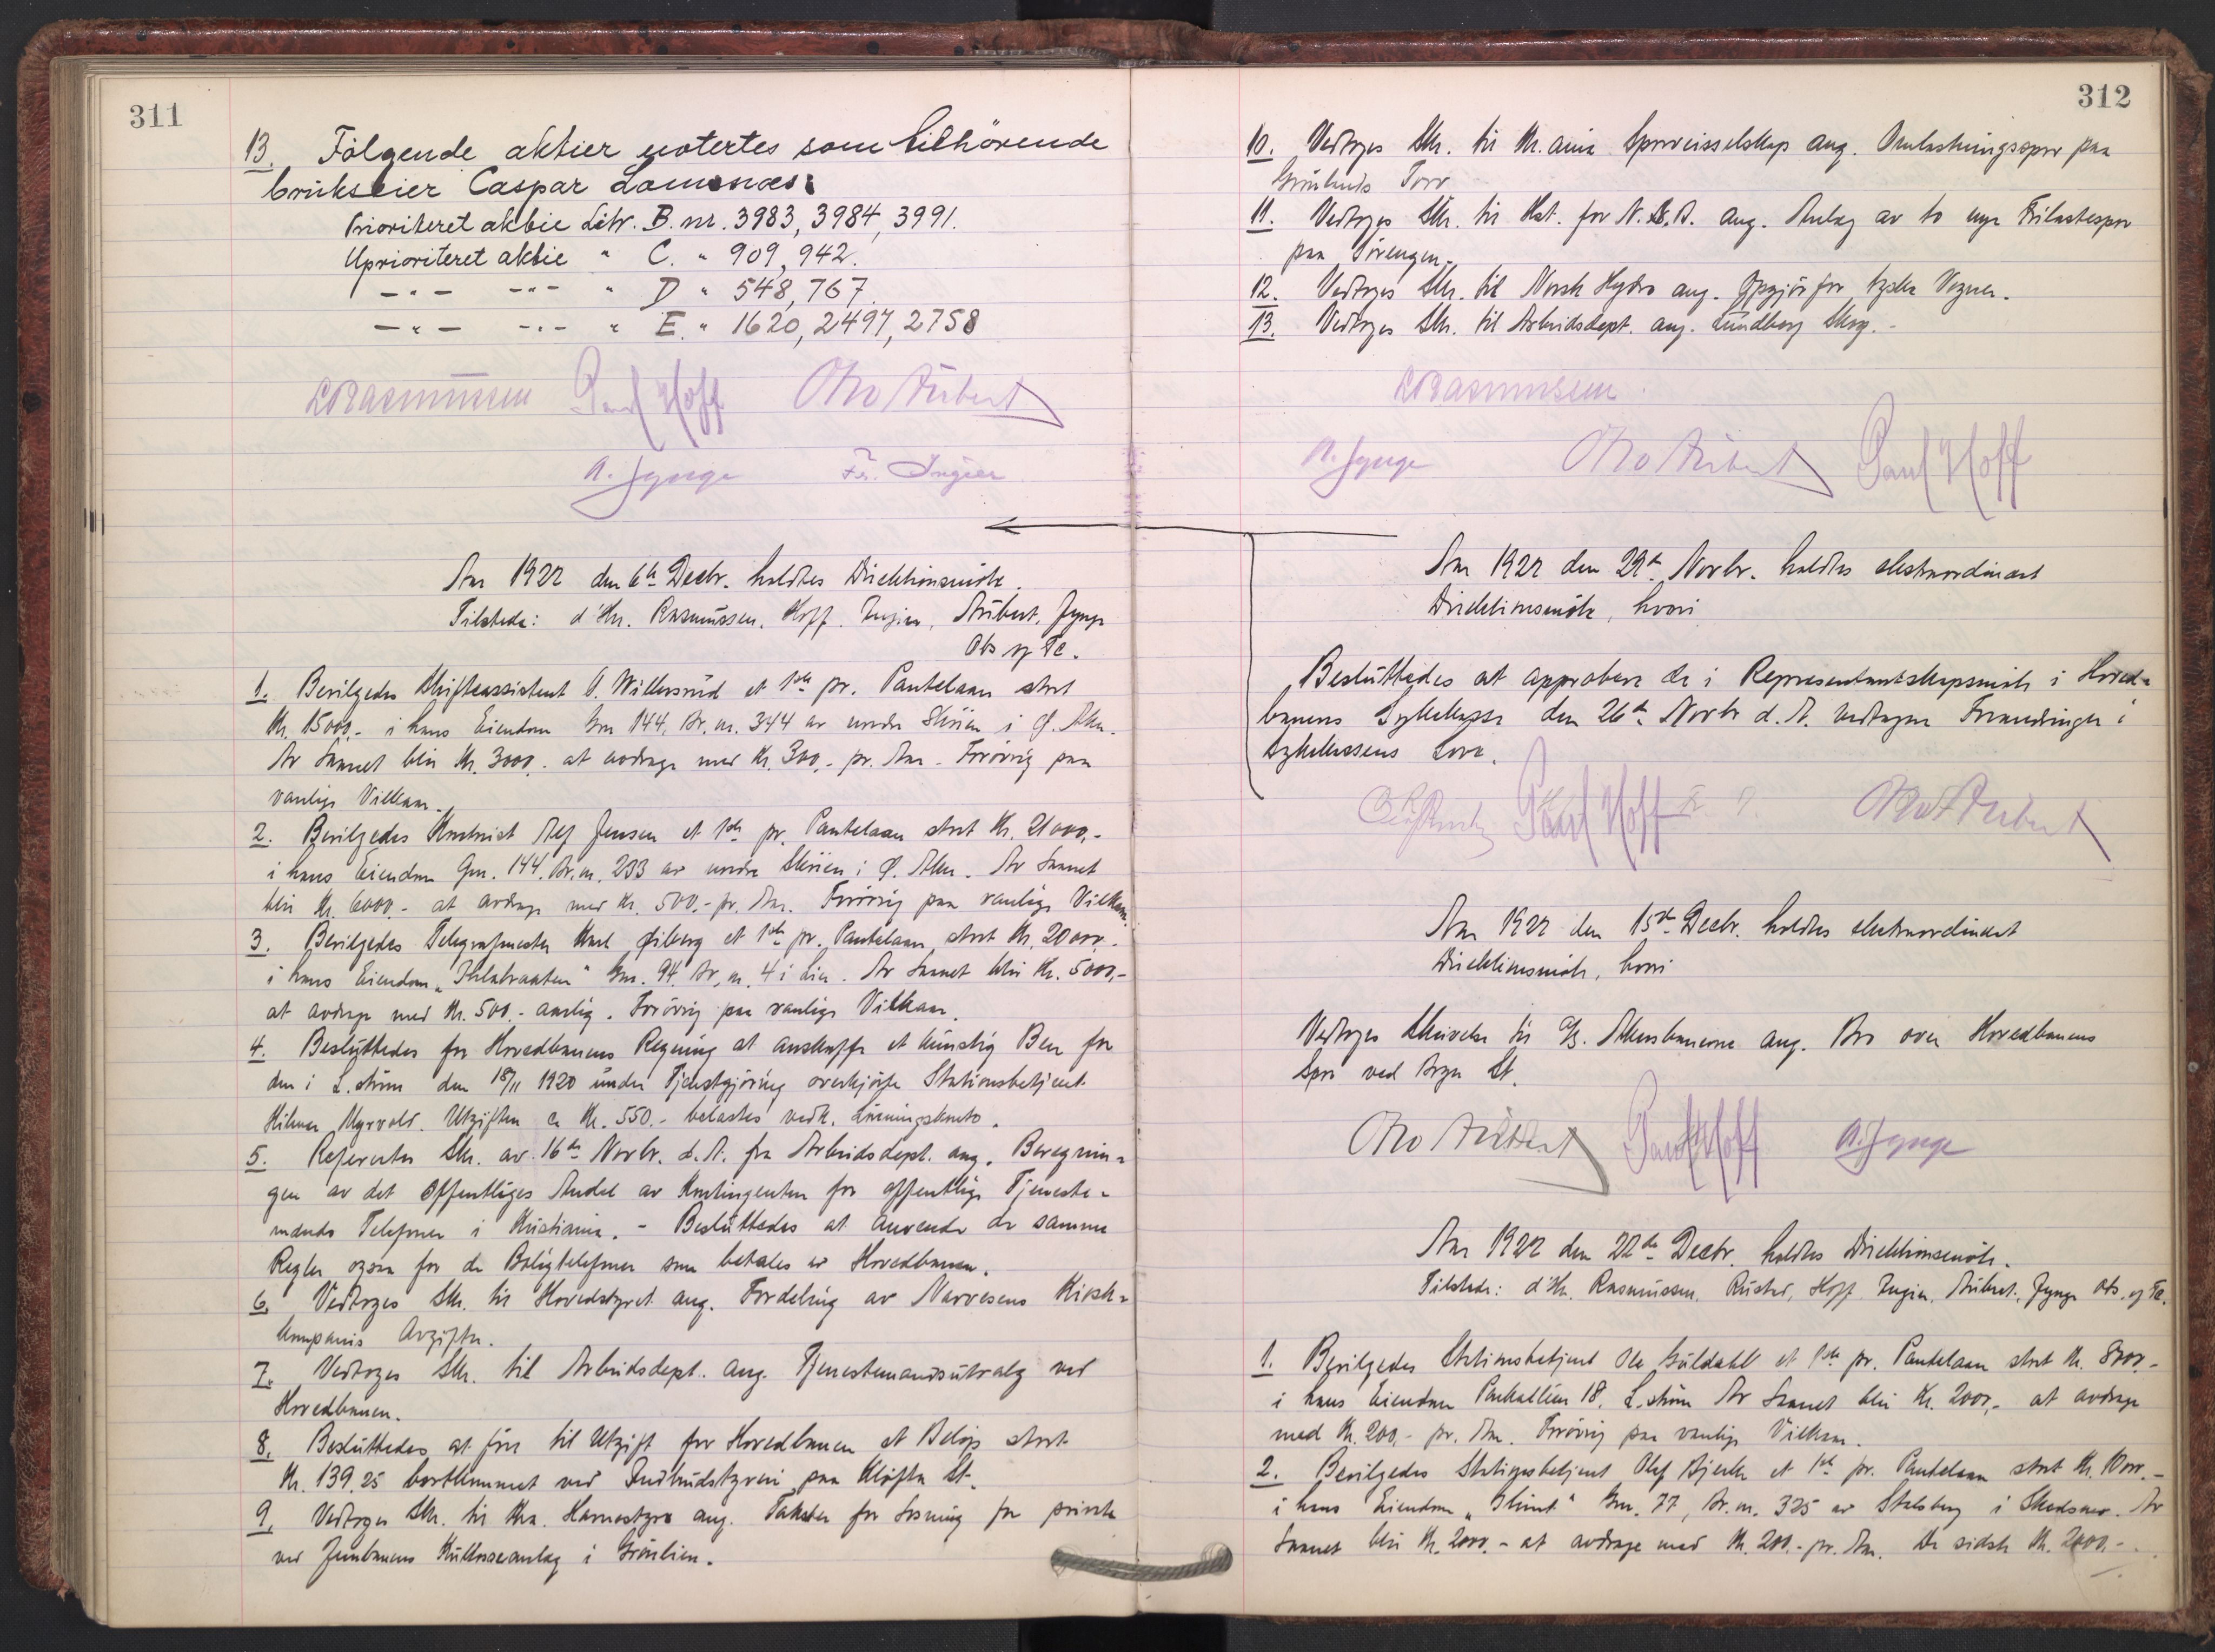 311
13. Følgende aktier notertes som tilhörende
brukseier Caspar Lomsnæs:
Prioriteret aktie Litr. B. nr. 3983, 3984, 3991.
Uprioriteret aktie " C. " 909, 942.
-"- -"- " D " 548, 767.
-"- -"- " E. " 1620, 2497, 2758
Rasmussen Paul Hoff Otto Aubert
A. Jynge Fr. Ingier
Aar 1922 den 6te Decbr. holdtes Direktionsmöte.
Tilstede: d'Hr. Rasmussen, Hoff, Ingier, Aubert, Jynge
Obs og Tc.
1. Bevilgedes Skifteassistent O. Willersrud et 1ste pr. Pantelaan stort
Kr. 15000.- i hans Eiendom Gnr 144, Br. nr. 344 av nordre Skøien i Ø. Aker.
Av Laanet blir Kr. 3000.- at avdrage med Kr. 300.- pr. Aar. Forövrig paa
vanlige Vilkaar.
2. Bevilgedes Kontorist Alf Jensen et 1ste pr. Pantelaan stort Kr. 21000.-
i hans Eiendom Gnr. 144. Br. nr. 233 av nordre Skøien i Ø. Aker. Av Laanet
blir Kr. 6000.- at avdrage med Kr. 500.- pr. Aar. Forövrig paa vanlige Vilkaar.
3. Bevilgedes Telegrafmester Karl Øiberg et 1ste pr. Pantelaan stort Kr. 20000.-
i hans Eiendom " Gnr. 94 Br. nr. 4 i Lier. Av Laanet blir Kr. 5000.-
at avdrage med Kr. 500.- aarlig. Forövrig paa vanlige Vilkaar.
4. Besluttedes for Hovedbanens Regning at anskaffe et kunstig Ben for
den i L.ström den 18/11 1920 under Tjenstgjöring overkjörte Stationsbetjent
Hilmar Myrvold. Utgiften ca Kr. 550.- belastes vedk. Lönningskonto.
5. Refereertes Skr. av 16de Novbr. d.A. fra Arbeidsdept. ang. Beregnin-
gen av det offentliges Andel av Kontingenten for offentlige Tjeneste-
mænds Telefoner i Kristiania. - Besluttedes at anvende de samme
Regler ogsaa for de Boligtelefoner som betales av Hovedbanen.
6. Vedtoges Skr. til Hovedstyret ang. Fordeling av Narvesens Kiosk-
kompanis Avgifter.
7. Vedtoges Skr. til Arbeidsdept. ang. Tjenestemandsutvalg ved
Hovedbanen.
8. Besluttedes at före til Utgift for Hovedbanen et Belöp stort
Kr. 139.25 bortkommet ved paa Klöfta St.
9. Vedtoges Skr. til Kra. Havnestyre ang. Takster for Losning for private
ved Jernbanens Kullosseanlæg i Grönlien.
312
10. Vedtoges Skr. til Kr.ania Sporveisselskap ang. Omlastningsspor paa
Grönlands Torv
11. Vedtoges Skr. til for N.S.B. ang. Anlæg av to nye Frilastespor
paa Lörengen.
12. Vedtoges Skr. til Norsk Hydro ang. Opgjör for tyske Vogner.
13. Vedtoges Skr. til Arbeidsdept. ang. Lundberg Skog.
Rasmussen.
A. Jynge Otto Aubert Paul Hoff
Aar 1922 den 29de Novbr. holdtes ekstraordinært
Direktionsmöte, hvori
Besluttedes at approbere de i Representantskapsmöte i Hoved-
banens Sykekasse den 26de Novbr d.A. vedtagne Forandringer i
Sykekassens Love.
Paul Hoff Otto Aubert
Aar 1922 den 15de Decbr. holdtes ekstraordinært
Direktionsmöte, hvori
Vedtoges Skrivelse til A/S. Akersbanerne ang. Bro over Hovedbanens
Spor ved Bryn St.
Otto Aubert Paul Hoff A. Jynge
Aar 1922 den 22de Decbr. holdtes Direktionsmöte.
Tilstede: d'Hr. Rasmussen, Rustad, Hoff, Ingier, Aubert, Jynge Obs. og Tc.
1. Bevilgedes Stationsbetjent Ole Guldahl et 1ste pr. Pantelaan stort Kr. 8000.-
i hans Eiendom Parkalléen 18, L.ström Av Laanet blir Kr. 2000.- at avdrage
med Kr. 200.- pr. Aar. Forövrig paa vanlige Vilkaar.
2. Bevilgedes Stationsbetjent Olaf Bjerke et 1ste pr. Pantelaan stort Kr. 10000.-
i hans Eiendom "Glimt" Gnr. 77, Br. nr. 325 av Stalsberg i Skedsmo. Av
Laanet blir Kr. 2000.- at avdrage med Kr. 200.- pr. Aar. De sidste Kr. 2000.-